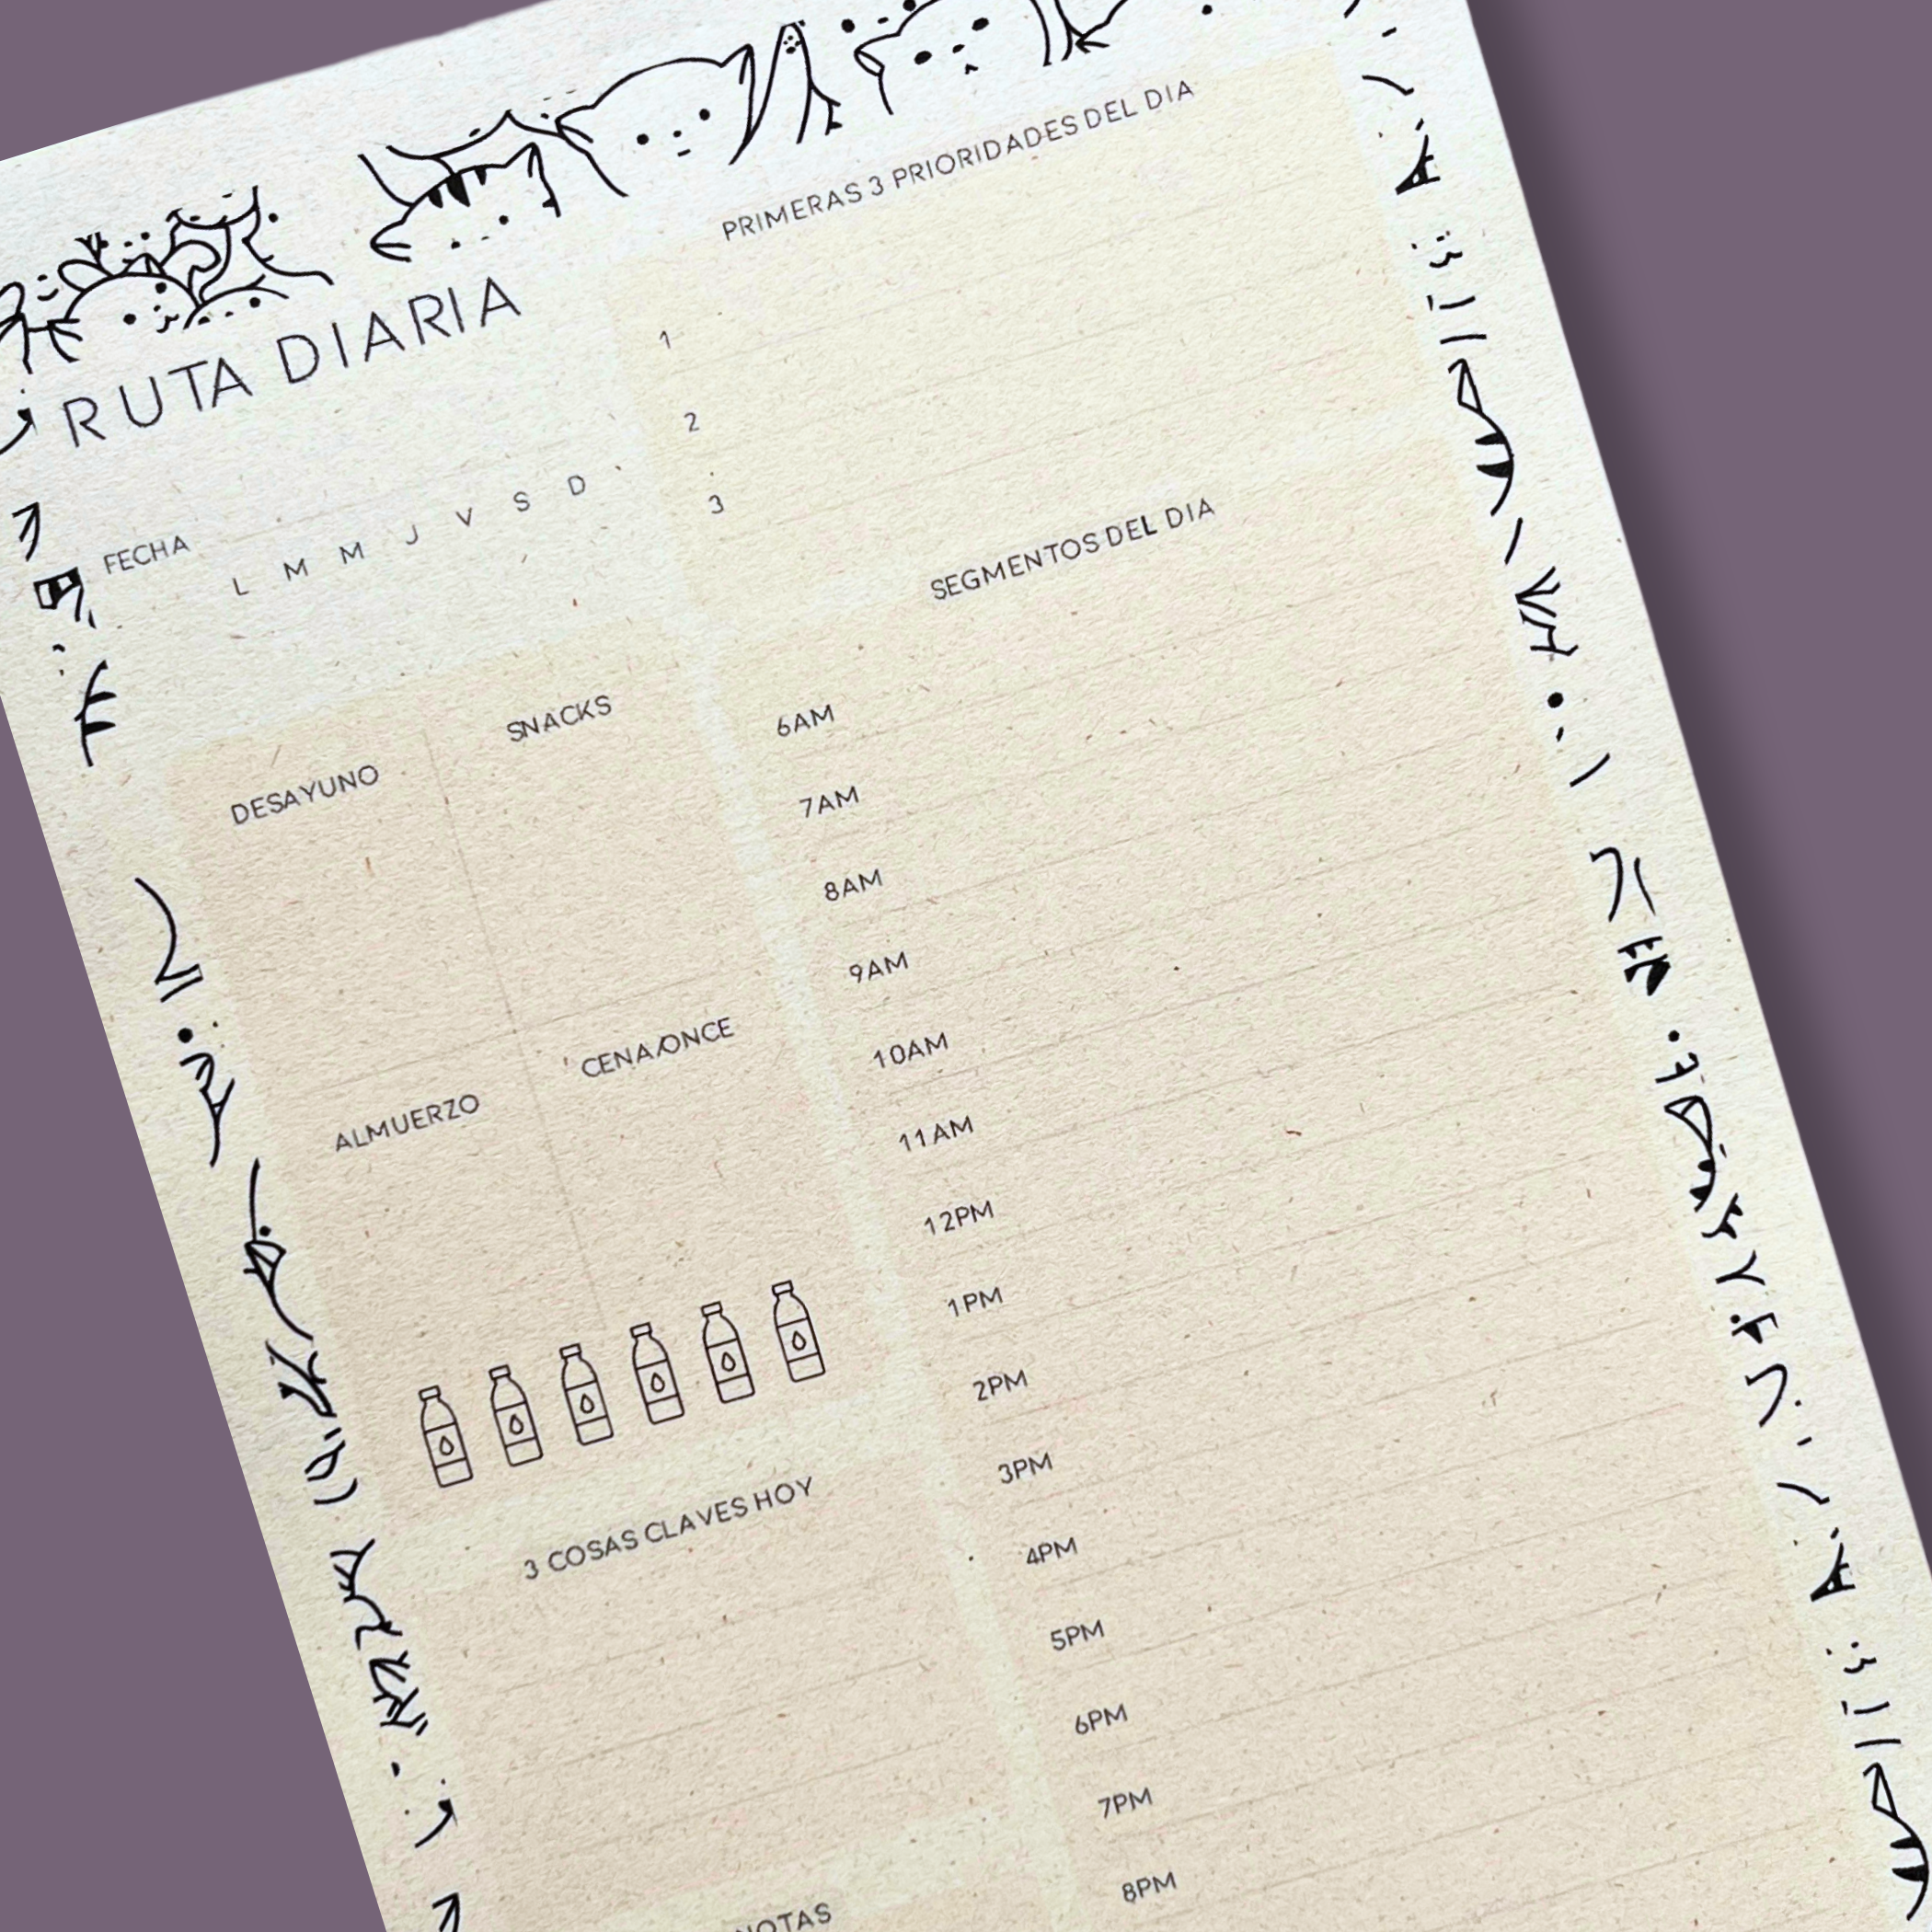 RUTA DIARIA
FECHA
L M M J V S D
PRIMERAS 3 PRIORIDADES DEL DIA
1
2
3
DESAYUNO
SNACKS
ALMUERZO
CENA/ONCE
3 COSAS CLAVES HOY
NOTAS
SEGMENTOS DEL DIA
6AM
7AM
8AM
9AM
10AM
11AM
12PM
1PM
2PM
3PM
4PM
5PM
6PM
7PM
8PM